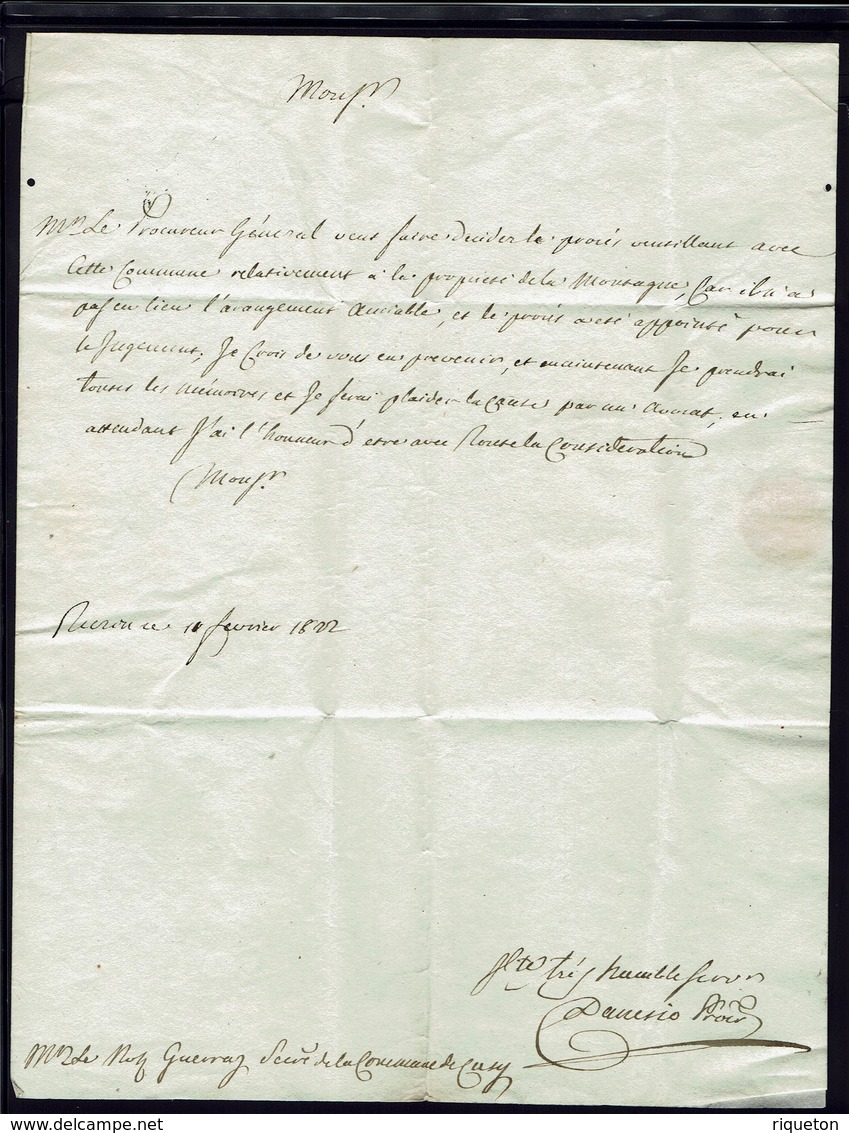 Monsr
Mr Le Procureur Général veut faire decider le procés ventillant avec
Cette Commune relativement à la propriété de la Montagne, Car il n'a
pas eu lieu l'arangement Amiable, et le procés a été appointé pour
le Jugement; Je Crois de vous en prevenir, et maintenant Je prendrai
toutes les mémoires et Je ferai plaider la Cause par un Avocat; en
attendant J'ai l'honneur d'etre avec Toute la Consideration
Monsr
11 fevrier 1822
trés humble servr
Danesio Procr
Mr Le Guerraz Secre de la Commune de Cusy
riqueton